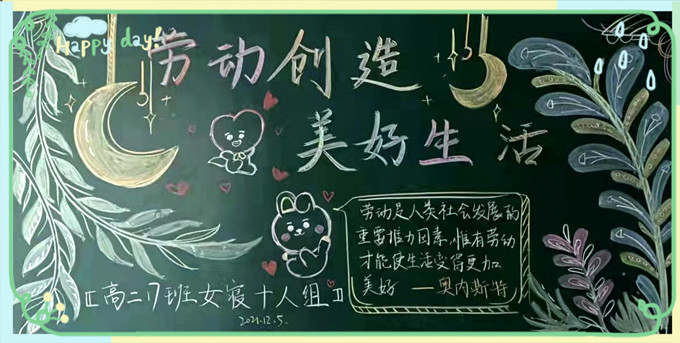 Happy day!
劳动创造
美好生活
劳动是人类社会发展的
重要推力因素,惟有劳动
才能使生活变得更加
美好 ——奥内斯特
【高二17班女寝十人组】
2021.12.5.